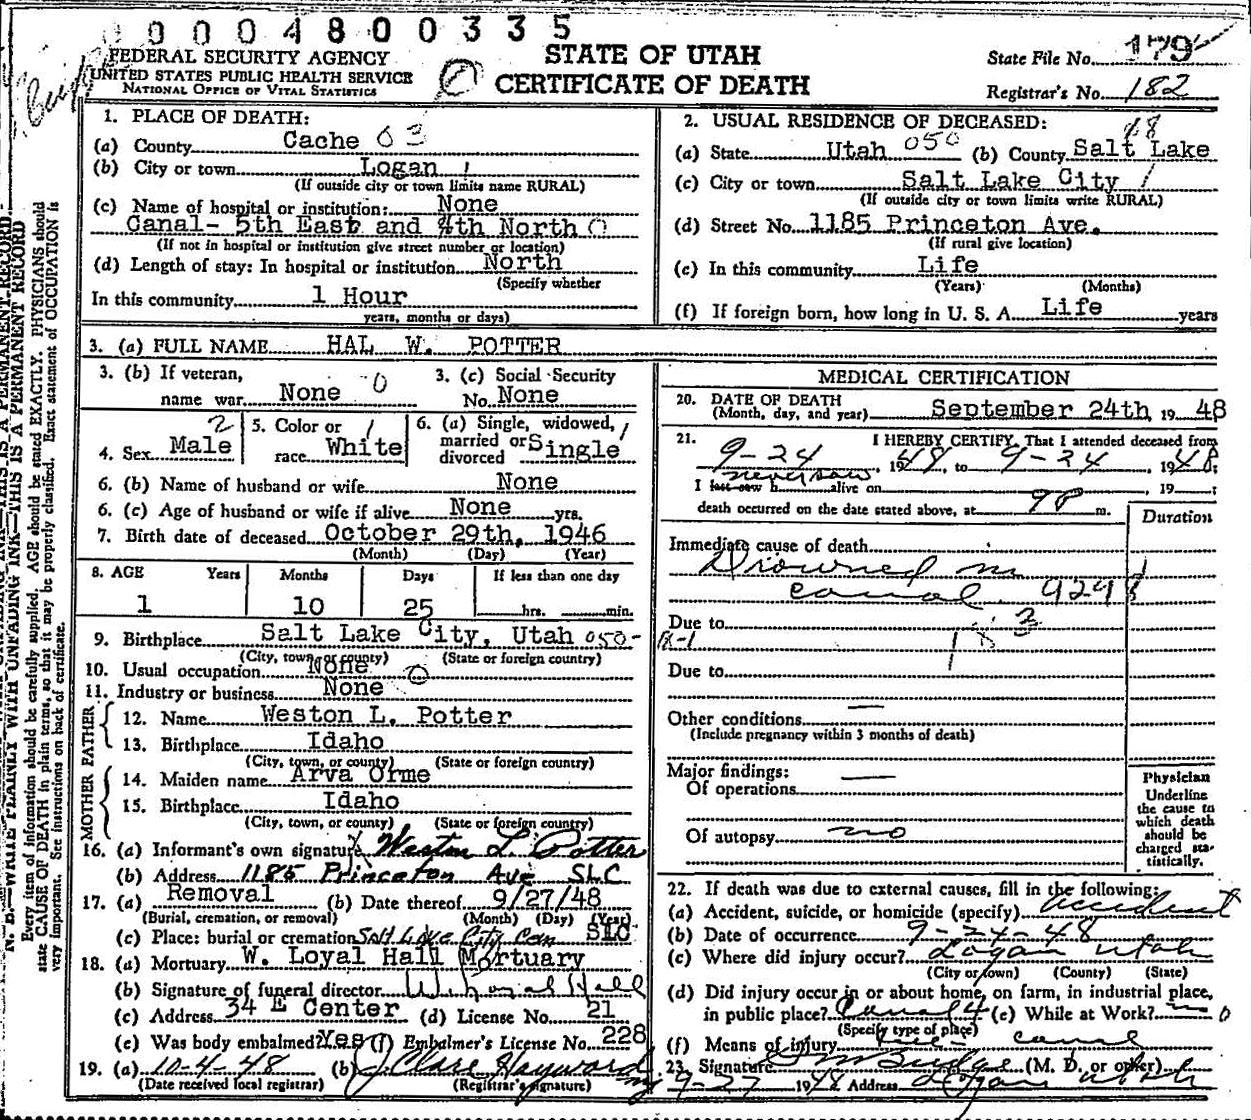 0 0 0 4 8 0 0 3 3 5
FEDERAL SECURITY AGENCY
UNITED STATES PUBLIC HEALTH SERVICE
NATIONAL OFFICE OF VITAL STATISTICS
STATE OF UTAH
CERTIFICATE OF DEATH
State File No. 179
Registrar's No. 182
N. B.—WRITE PLAINLY WITH UNFADING INK—THIS IS A PERMANENT RECORD.
Every item of information should be carefully supplied. AGE should be stated EXACTLY. PHYSICIANS should
state CAUSE OF DEATH in plain terms, so that it may be properly classified. Exact statement of OCCUPATION is
very important. See instructions on back of certificate.
1. PLACE OF DEATH:
(a) County Cache 03
(b) City or town Logan 1
(If outside city or town limits name RURAL)
(c) Name of hospital or institution: None
Canal- 5th East and 4th North
(If not in hospital or institution give street number or location)
(d) Length of stay: In hospital or institution North
(Specify whether
In this community 1 Hour
years, months or days)
2. USUAL RESIDENCE OF DECEASED:
(a) State Utah 050 (b) County Salt Lake 18
(c) City or town Salt Lake City 1
(If outside city or town limits write RURAL)
(d) Street No. 1185 Princeton Ave.
(If rural give location)
(e) In this community Life
(Years) (Months)
(f) If foreign born, how long in U. S. A. Life years
3. (a) FULL NAME HAL W. POTTER
3. (b) If veteran, name war None 0
3. (c) Social Security No. None
4. Sex Male 2
5. Color or race White 1
6. (a) Single, widowed, married or divorced Single 1
6. (b) Name of husband or wife None
6. (c) Age of husband or wife if alive None yrs.
7. Birth date of deceased October 29th, 1946
(Month) (Day) (Year)
8. AGE Years Months Days If less than one day
1 10 25 hrs. min.
9. Birthplace Salt Lake City, Utah 050-
(City, town or county) (State or foreign country)
10. Usual occupation None
11. Industry or business None
FATHER
12. Name Weston L. Potter
13. Birthplace Idaho
(City, town, or county) (State or foreign country)
MOTHER
14. Maiden name Arva Orme
15. Birthplace Idaho
(City, town, or county) (State or foreign country)
16. (a) Informant's own signature Weston L. Potter
(b) Address 1185 Princeton Ave SLC
17. (a) Removal (b) Date thereof 9/27/48
(Burial, cremation, or removal) (Month) (Day) (Year)
(c) Place: burial or cremation Salt Lake City Cem SLC
18. (a) Mortuary W. Loyal Hall Mortuary
(b) Signature of funeral director W. Loyal Hall
(c) Address 34 E Center (d) License No. 21
(e) Was body embalmed? Yes (f) Embalmer's License No. 228
19. (a) 10-4-48 (b) J. Clare Hayward
(Date received local registrar) (Registrar's signature)
MEDICAL CERTIFICATION
20. DATE OF DEATH
(Month, day, and year) September 24th, 19 48
21. I HEREBY CERTIFY, That I attended deceased from
9-24, 1948, to 9-24, 1948;
I last saw h never saw alive on , 19 ;
death occurred on the date stated above, at 9P m.
Duration
Immediate cause of death
Drowned in
canal. 9298
Due to
Due to
Other conditions —
(Include pregnancy within 3 months of death)
Major findings:
Of operations —
Of autopsy no
Physician
Underline
the cause to
which death
should be
charged sta-
tistically.
22. If death was due to external causes, fill in the following:
(a) Accident, suicide, or homicide (specify) accident
(b) Date of occurrence 9-24-48
(c) Where did injury occur? Logan Utah
(City or town) (County) (State)
(d) Did injury occur in or about home, on farm, in industrial place,
in public place? Canal 4 (e) While at Work? no 0
(Specify type of place)
(f) Means of injury canal
23. Signature Budge (M. D. or other)
9-27 1948 Address Logan Utah